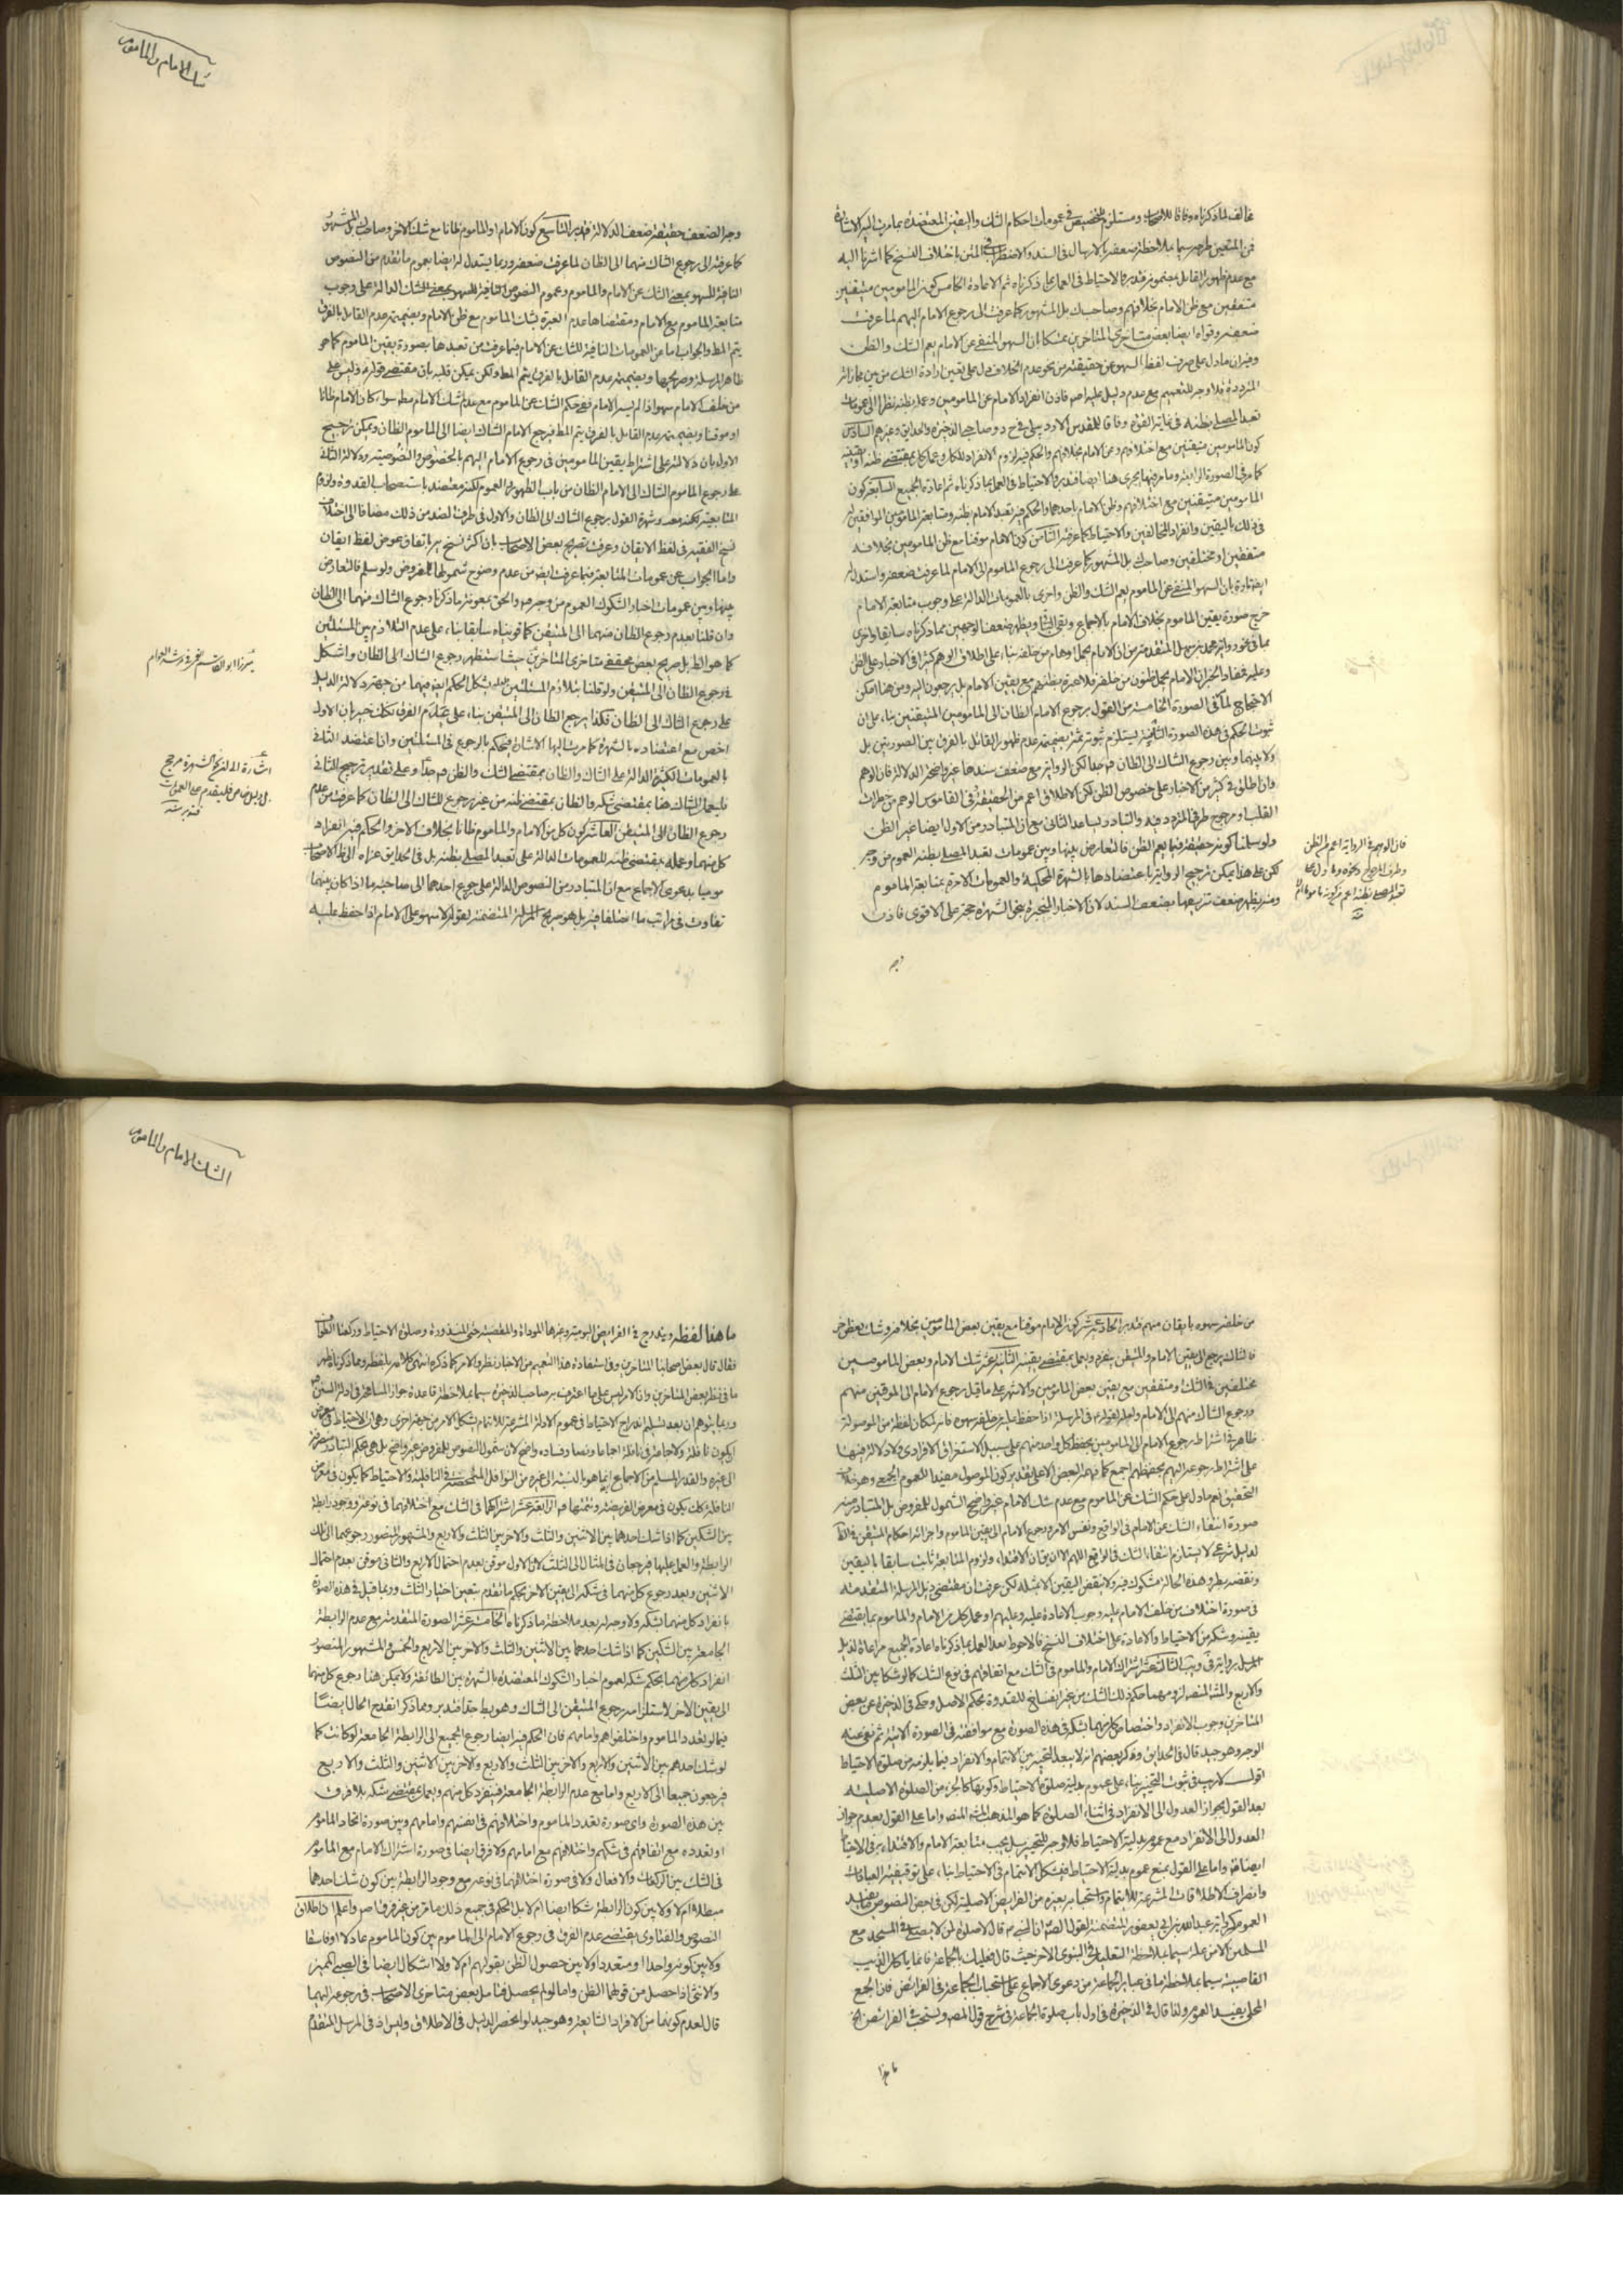 شك الامام والماموم
مخالف لما ذكرناه وفاقا للاصحاب ومستلزم للتخصيص في عمومات احكام الشك واليقين المعتضدة بما مرت اليه الاشارة
فمن المتعين طرحه سيما بملاحظة ضعفه بالارسال في السند والاضطراب في المتن باختلاف النسخ كما اشرنا اليه
مع عدم ظهور القائل بعمومه فتدبر والاحتياط في العمل على ما ذكرناه ثم الاعادة الخامس كون المامومين متيقنين
متفقين مع ظن الامام بخلافهم وصاحب بل المشهور كما عرفت الى رجوع الامام اليهم لما عرفت
ضعفه وقواه ايضا بعض متاخري المتاخرين متمسكا بان السهو المنفي عن الامام يعم الشك والظن
وفيه ان ما دل على صرف لفظ السهو عن حقيقته من نحو عدم الخلاف دل على تعين ارادة الشك من بين مجازاته
كون المامومين متيقنين مع اختلافهم وظن الامام بخلافهم والحكم فيه لزوم الانفراد للكل وعمل كل بمقتضى ظنه او يقينه
كما مر في الصورة الرابعة وما مر فيها يجري هنا ايضا فتدبر والاحتياط في العمل بما ذكرناه ثم اعادة الجميع السابع كون
المامومين متيقنين مع اختلافهم وظن الامام باحدهما والحكم فيه تعبد الامام بظنه ومتابعة المامومين الموافقين له
في ذلك باليقين وانفراد المخالفين والاحتياط كما عرفته الثامن كون الامام موقنا مع ظن المامومين بخلافه
متفقين او مختلفين وصاحب بل المشهور كما عرفت الى رجوع الماموم الى الامام لما عرفت ضعفه واستدل له
ايضا تارة بان السهو المنفي عن الماموم يعم الشك والظن واخرى بالعمومات الدالة على وجوب متابعة الامام
خرج صورة يقين الماموم بخلاف الامام بالاجماع وبقي الباقي ويظهر ضعف الوجهين مما ذكرناه سابقا واخرى
الاحتجاج لما في الصورة الخامسة من القول برجوع الامام الظان الى المامومين المتيقنين بناء على ان
ثبوت الحكم في هذه الصورة الثامنة يستلزم ثبوته ثمة بضميمة عدم ظهور القائل بالفرق بين الصورتين بل
ولا بينهما وبين رجوع الشاك الى الظان فهم جدا لكن الرواية مع ضعف سندها غير واضحة الدلالة فان الوهم
وان اطلق في كثير من الاخبار على خصوص الظن لكن الاطلاق اعم من الحقيقة وفي القاموس الوهم من خطرات
القلب او مرجوح طرفي المتردد فيه والتبادر يساعد الثاني مع ان المتبادر من الاول ايضا غير الظن
ولو سلمنا كونه حقيقة فيما يعم الظن فالتعارض بينها وبين عمومات تعبد المصلي بظنه العموم من وجه
لكن على هذا يمكن ترجيح الرواية باعتضادها بالشهرة المحكية والعمومات الآمرة بمتابعة الماموم
ومنه يظهر ضعف تزييفها بضعف السند لان الاخبار المنجبرة بنحو الشهرة حجة على الاقوى فاذن
وجه الضعف حقيقة ضعف الدلالة فتدبر التاسع كون الامام او الماموم ظانا مع شك الاخر وصاحب بل المشهور
كما عرفته الى رجوع الشاك منهما الى الظان لما عرفت ضعفه وربما يستدل له ايضا بعموم ما تقدم من النصوص
النافية للسهو بمعنى الشك عن الامام والماموم وعموم النصوص النافية للسهو بمعنى الشك الدالة على وجوب
متابعة الماموم مع الامام ومقتضاها عدم العبرة بشك الماموم مع ظن الامام وبضميمة عدم القائل بالفرق
يتم المط والجواب اما عن العمومات النافية للشك عن الامام فبما عرفت من تعبدها بصورة يقين الماموم كما هو
ظاهر المرسلة وصريحها وبضميمة عدم القائل بالفرق يتم المط ولكن يمكن قلبه بان مقتضى قوله وليس على
من خلف الامام سهو اذا لم يسه الامام نفي حكم الشك عن الماموم مع عدم شك الامام مط سواء كان الامام ظانا
او موقنا وبضميمة عدم القائل بالفرق يتم المط فيرجع الامام الشاك ايضا الى الماموم الظان ويمكن ترجيح
الاول بان دلالته على اشتراط يقين المامومين في رجوع الامام اليهم بالخصوص والنصوصية ودلالة الثاني
على رجوع الماموم الشاك الى الامام الظان من باب الظهور والعموم لكنه معتضد باستصحاب القدوة ولزوم
نسخ الفقيه في لفظ الايقان وعرفت تصريح بعض الاصحاب بان اكثر نسخه باتفاق عوض لفظ ايقان
واما الجواب عن عمومات المتابعة فبما عرفت ايضا من عدم وضوح شمولها للمفروض ولو سلم فالتعارض
بينها وبين عمومات اخبار الشكوك العموم من وجه والحق بمعونة ما ذكرنا رجوع الشاك منهما الى الظان
وان قلنا بعدم رجوع الظان منهما الى المتيقن كما قويناه سابقا بناء على عدم التلازم بين المسئلتين
كما هو الظ بل صريح بعض محققي متاخري المتاخرين حيث استظهر رجوع الشاك الى الظان واشكل
في رجوع الظان الى المتيقن ولو قلنا بتلازم المسئلتين يشكل الحكم ايضا فيهما من جهة دلالة الدليل
على رجوع الشاك الى الظان فكذا يرجع الظان الى المتيقن بناء على عدم الفرق لكنك خبير بان الاول
اخص مع اعتضاده بالشهرة كما مرت اليها الاشارة فيحكم بالرجوع في المسئلتين وانا عتضد الثاني
بالعمومات الكثيرة الدالة على الشاك والظان بمقتضى الشك والظن فهم جدا وعلى تقدير ترجيح الثاني
فليعمل الشاك هنا بمقتضى شكه والظان بمقتضى ظنه من غير رجوع للشاك الى الظان كما عرفت من عدم
رجوع الظان الى المتيقن العاشر كون كل من الامام والماموم ظانا بخلاف الاخر والحكم فيه انفراد
كل منهما وعمله بمقتضى ظنه للعمومات الدالة على تعبد المصلي بظنه بل في الحدايق عزاه الى ظ الاصحاب
موميا بدعوى الاجماع مع ان المتبادر من النصوص الدالة على رجوع احدهما الى صاحبه ما اذا كان بينهما
تفاوت في مراتب ما اختلفا فيه بل هو صريح المرسلة المتضمنة لقوله لا سهو على الامام اذا حفظ عليه
ميرزا ابو القاسم
اشارة الى ان الشهرة مرجح
فتدبر منه
فان الوهم في الرواية اعم من الظن
منه
الشك الامام والماموم
من خلفه سهوه بايقان منهم فتدبر الحادي عشر كون الامام موقنا مع يقين بعض المامومين بخلافه وشك بعض اخر
فالشاك يرجع الى يقين الامام والمتيقن ينفرد ويعمل بمقتضى يقينه الثاني عشر شك الامام وبعض المامومين
مختلفين في الشك او متفقين مع يقين بعض المامومين والاشهر على ما قيل رجوع الامام الى الموقنين منهم
ورجوع الشاك منهم الى الامام ولعله لقوله في المرسلة اذا حفظ عليه من خلفه سهوه فانه لمكان لفظة من الموصولة
ظاهر في اشتراط رجوع الامام الى المامومين بحفظ كل واحد منهم على سبيل الاستغراق الافرادي فلا دلالة فيها
على اشتراط رجوعه اليهم بحفظهم اجمع كما فهمه البعض الا على تقدير كون الموصول مفيدا للعموم الجمعي وهو خلاف
التحقيق نعم ما دل على حكم الشك عن الماموم مع عدم شك الامام غير واضح الشمول للمفروض بل المتبادر منه
صورة انتفاء الشك عن الامام في الواقع ونفس الامر ورجوع الامام الى يقين الماموم واجرائه احكام المتيقن في الظ
لدليل شرعي لا يستلزم انتفاء الشك في الواقع اللهم الا ان يقال ان الاقتداء ولزوم المتابعة ثابت سابقا باليقين
ونقضه بطرو هذه الحالة مشكوك فيه ولا ينقض اليقين الا بمثله لكن عرفت ان مقتضى ذيل المرسلة المتقدمة
في صورة اختلاف من خلف الامام عليه وجوب الاعادة عليه وعليهم او عمل كل من الامام والماموم بما يقتضي
يقينه وشكه من الاحتياط والاعادة على اختلاف النسخ فالاحوط بعد العمل بما ذكرناه اعادة الجميع مراعاة لذيل
المرسل الثالث عشر اشتراك الامام والماموم في الشك مع اتفاقهم في نوع الشك كما لو شكا بين الثلث
والاربع والمتجه لزومهما حكم ذلك الشك من غير انفساخ للقدوة بحكم الاصل وحكى في الذخيرة عن بعض
المتاخرين وجوب الانفراد واختصاص كل منهما بشكه في هذه الصورة مع موافقته في الصورة الاتية ثم نفى عنه
الوجه وهو جيد قال في الحدايق وذكر بعضهم انه لا يبعد التخيير بين الائتمام والانفراد فيما يلزمه من صلوة الاحتياط
اقول لا ريب في ثبوت التخيير بناء على عموم بدلية صلوة الاحتياط وكونها كالجزء من الصلوة الاصلية
بعد القول بجواز العدول الى الانفراد في اثناء الصلوة كما هو المذهب المنصور واما على القول بعدم جواز
العدول الى الانفراد مع عموم بدلية الاحتياط فلا وجه للتخيير بل يجب متابعة الامام والاقتداء به في الاحتياط
ايضا واما على القول بمنع عموم بدلية الاحتياط فيشكل الائتمام في الاحتياط بناء على توقيفية العبادات
وانصراف الاطلاقات المشرعة للائتمام واستحبابه بغيره من الفرايض الاصلية لكن في بعض النصوص ما يفيد
العموم كرواية عبد الله بن ابي يعفور المتضمنة لقول الصادق ان النبي ص قال لا صلوة لمن لا يصلي في المسجد مع
المسلمين الا من علة سيما بملاحظة التعليل في النبوي الاخر حيث قال فعليك بالجماعة فانما ياكل الذئب
القاصية سيما بملاحظة ما في عباير الجماعة من دعوى الاجماع على استحباب الجماعة في الفرائض فان الجمع
المحلى يفيد العموم ولذا قال في الذخيرة في اول باب صلوة الجماعة في شرح قول المصنف وتستحب في الفرائض الخ
ما هذا
ما هذا لفظه ويندرج في الفرايض اليومية وغيرها المؤداة والمقضية حتى المنذورة وصلوة الاحتياط وركعتا الطواف
فقال قال بعض اصحابنا المتاخرين وفي استفادة هذا التعميم من الاخبار نظر والامر كما ذكره انتهى كلامه بلفظه ومما ذكرنا يظهر
ما في نظر بعض المتاخرين وان الامر ليس على ما اعترف به صاحب الذخيرة سيما بملاحظة قاعدة جواز المسامحة في ادلة السنن
وربما يتوهم ان بعد تسليم اندراج الاحتياط في عموم الادلة المشرعة للائتمام يشكل الامر من جهة اخرى وهي ان الاحتياط في معرض
ان يكون نافلة ولا جماعة في نافلة اجماعا ونصا وفساده واضح لان شمول النصوص للمفروض غير واضح بل هي بحكم التبادر منصرفة
الى غيره والقدر المسلم من الاجماع انما هو بالنسبة الى غيره من النوافل المتمحضة في النافلية والاحتياط كما يكون في معرض
النافلة كذلك يكون في معرض الفريضة وتتمتها فتم الرابع عشر اشتراكهما في الشك مع اختلافهما في نوعه ووجود رابطة
بين الشكين كما اذا شك احدهما بين الاثنين والثلث والاخر بين الثلث والاربع والمشهور المنصور رجوعهما الى تلك
الرابطة والعمل عليها فيرجعان في المثال الى الثلث لان الاول موقن بعدم احتمال الاربع والثاني موقن بعدم احتمال
الاثنين وبعد رجوع كل منهما في شكه الى يقين الاخر بحكم ما تقدم يتعين اختيار الثلث وربما قيل في هذه الصورة
بانفراد كل منهما بشكه ولا وجه له بعد ملاحظة ما ذكرناه الخامس عشر الصورة المتقدمة مع عدم الرابطة
الجامعة بين الشكين كما اذا شك احدهما بين الاثنين والثلث والاخر بين الاربع والخمس والمشهور المنصور
انفراد كل منهما بحكم شكه لعموم اخبار الشكوك المعتضدة بالشهرة بين الطائفة ولا يمكن هنا رجوع كل منهما
الى يقين الاخر لاستلزامه رجوع المتيقن الى الشاك وهو بط جدا فتدبر ومما ذكر انقدح الحال ايضا
فيما لو تعدد الماموم واختلفوا هم وامامهم فان الحكم فيه ايضا رجوع الجميع الى الرابطة الجامعة لو كانت كما
لو شك احدهم بين الاثنين والاربع والاخر بين الثلث والاربع والاخر بين الاثنين والثلث والاربع
فيرجعون جميعا الى الاربع واما مع عدم الرابطة الجامعة فينفرد كل منهم ويعمل بمقتضى شكه بلا فرق
بين هذه الصورة واي صورة تعدد الماموم واختلافهم في انفسهم وامامهم وبين صورة اتحاد الماموم
او تعدده مع اتفاقهم في شكهم واختلافهم مع امامهم ولا فرق ايضا في صورة اشتراك الامام مع الماموم
في الشك بين الركعات والافعال ولا في صورة اختلافهما في نوعه مع وجود الرابطة بين كون شك احدهما
مبطلا ام لا ولا بين كون الرابطة شكا ايضا ام لا بل الحكم في جميع ذلك ما مر من غير فرق اصلا واعلم ان اطلاق
النصوص والفتاوى يقتضي عدم الفرق في رجوع الامام الى الماموم بين كون الماموم عادلا او فاسقا
ولا بين كونه واحدا او متعددا ولا بين حصول الظن بقولهم ام لا ولا اشكال ايضا في الصبي المميز
والانثى اذا حصل من قولهما الظن واما لو لم يحصل فتامل بعض متاخري الاصحاب في رجوعه اليهما
قال لعدم كونهما من الافراد الشايعة وهو جيد لو انحصر الدليل في الاطلاق وليس اذ في المرسل المتقدم